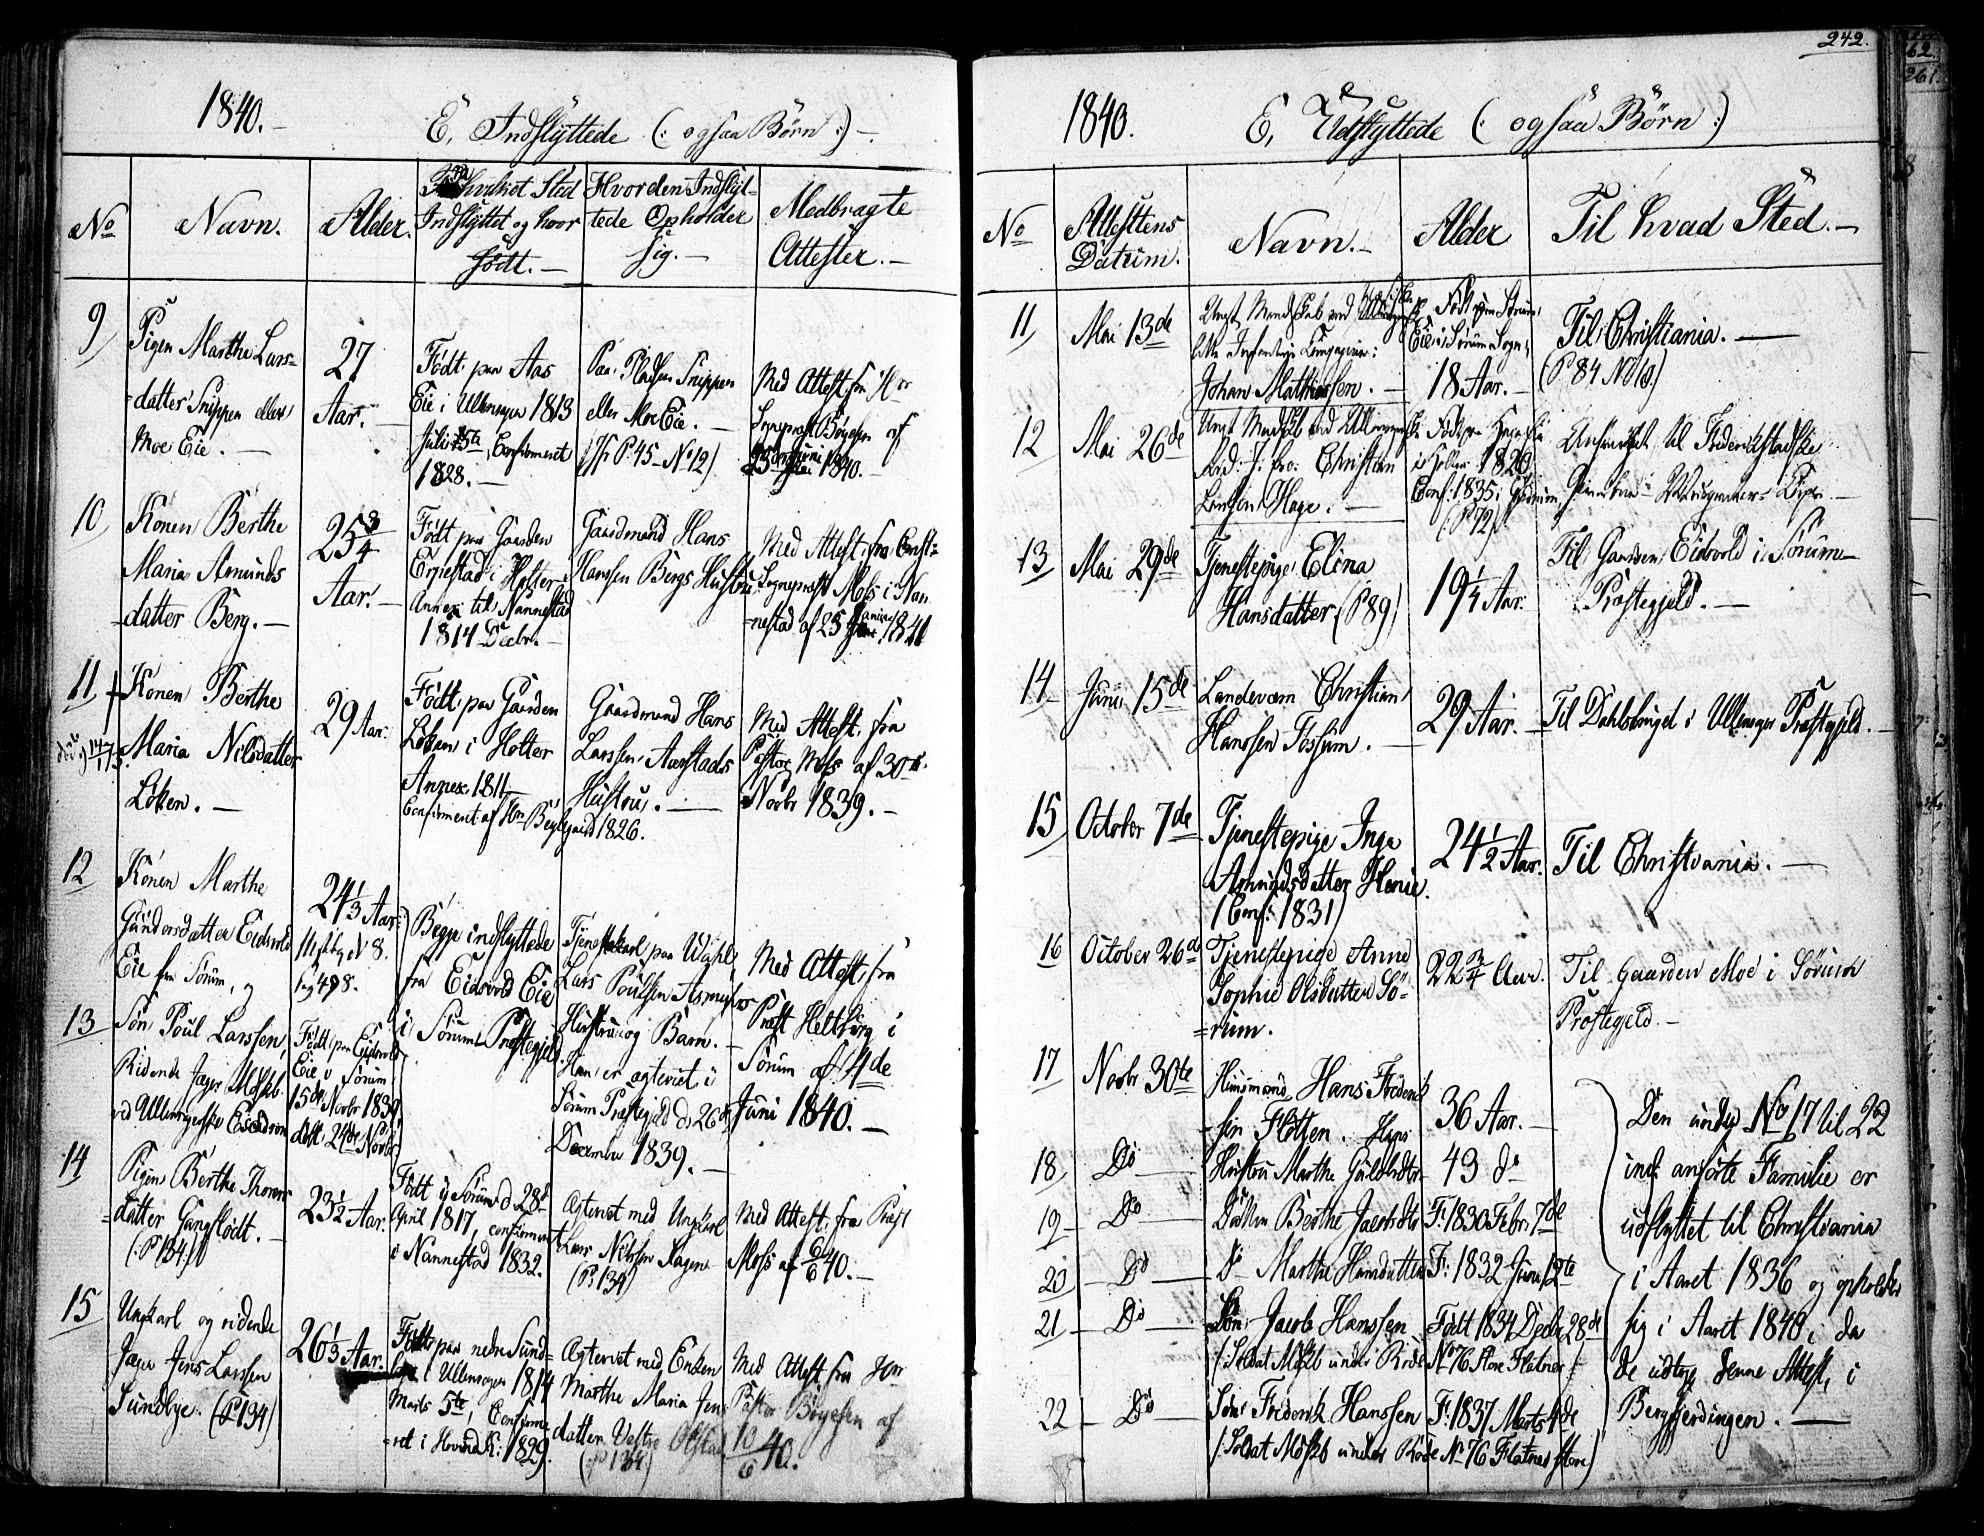 1840.
E, Indflyttede (: ogsaa Børn :)
No
Navn.
Alder.
Fra hvilket Sted
Indflyttet og hvor
født.
Hvor den Indflyt-
tede Opholder
sig.
Medbragte
Attester.
9
Pigen Marthe Lars-
datter Snippen eller
Moe Eie.
27
Aar.
Født paa Aas
Eie i Ullensager 1813
Juli 15te, Confirmeret
1828.
Paa Pladsen Snippen
eller Moe Eie.
(P. 45 No 12)
Med Attest fra Hr
Sognepræst Bøyesen af
1840.
10
Konen Berthe
Maria Amunds
datter Berg.
25 3/4
Aar.
Født paa Gaarden
i Holter
Annex til Nannestad
1814 Decbr.
Gaardmand Hans
Hanssen Bergs Hustru
Med Attest fra
Sognepræst Moss i Nan
nestad af 25 1841
11
Konen Berthe
Maria Nilsdatter
Løken.
29 Aar.
Født paa Gaarden
Løken i Holter
Annex 1811
Confirmeret af Hr 1826.
Gaardmand Hans
Larssen Aarstads
Hustru.
Med Attest fra
Pastor Moss af 30te
Novbr 1839.
12
Konen Marthe
Gundersdatter Eidsvold
Eie fra Sørum, og
24 1/3 Aar.
No 8.
498.
Begge indflyttede
fra Eidsvold Eie
i Sørum Præstegjeld.
Tjenestekarl paa
Lars Poulsen
Hustru og Barn.
Han er ægteviet i
Sørum Præstegjeld d. 26de
December 1839.
Med Attest fra
Præst Heltberg i
Sørum af 4de
Juni 1840.
13
Søn Poul Larssen,
Ridende Jæger Mskb.
ved Ullensagerske Escadron
Født paa Eidsvold
Eie i Sørum
15de Novbr 1839
døbt 24de Novbr
14
Pigen Berthe Thores-
datter Gangflødt.
(P 134)
23 1/2 Aar.
Født i Sørum d. 28de
April 1817, confirmeret
i Nannestad 1832.
Ægteviet med Ungkarl
Lars Nilssen
(P. 134)
Med Attest fra Præst
Moss af 6/6 40.
15
Ungkarl og ridende
Jæger Jens Larssen
Sundbye. (P 134)
26 1/3 Aar.
Født paa nedre Sund-
bye i Ullensager 1814
Marts 5te, Confirme-
ret i Hovind K: 1829.
Ægteviet med Enken
Marthe Maria Jens
datter Vestre Olstad
(P 134)
Med Attest fra Hr
Pastor Bøyesen af
10/6 40.
242.
62.
261.
1840.
E, Udflyttede (: ogsaa Børn :)
No
Attestens
Datum.
Navn.
Alder
Til hvad Sted.
11
Mai 13de
Ungt Mandskab ved
Johan Mathiassen.
Født paa Sørum
Eie i Sørum Sogn,
18 Aar.
Til Christiania.
(P 84 No 10.)
12
Mai 26de
Ungt Mandskab ved Ullensagerske
Christian
Larssen Hage.
1820
Conf: 1835 i
(P 72)
til Frederikstadske
13
Mai 29de
Tjenestepige Elena
Hansdatter (P 89)
19 1/4 Aar.
Til Gaarden Eidsvold i Sørum
Præstegjeld.
14
Juni 15de
Landeværn Christian
Hanssen Fossum.
29 Aar.
Til Dahlskruget i Ullensager Præstegjeld.
15
October 7de
Tjenestepige Inge
Amundsdatter Henie.
(Conf: 1831)
24 1/2 Aar.
Til Christiania.
16
October 26de
Tjenestepige Anne
Sophie Olsdatter Sø-
rum.
22 3/4 Aar.
Til Gaarden Moe i Sørum
Præstegjeld.
17
Novbr 30te
Huusmand Hans Frederik
sen Flotten. Hans
36 Aar.
Den under No 17 til 22
incl: anførte Familie er
udflyttet til Christiania
i Aaret 1836 og opholder
sig i Aaret 1840, da
de udtoge denne Attest, i
Bergfjerdingen.
18
Do
Hustru Marthe Guldbrdtr
43 do
19
Do
Datter Berthe
F: 1830 Febr: 7de
20
Do
do Marthe Hansdatter
F: 1832 Juni 12te
21
Do
Søn Jacob Hanssen
Født 1834 Decbr 28de
(Soldat Mskb under Rode No 76 store Flatner)
22
Do
Søn Frederik Hanssen
F: 1837 Marts 4de
(Soldat Mskb under Rode No 76 Flatner store)